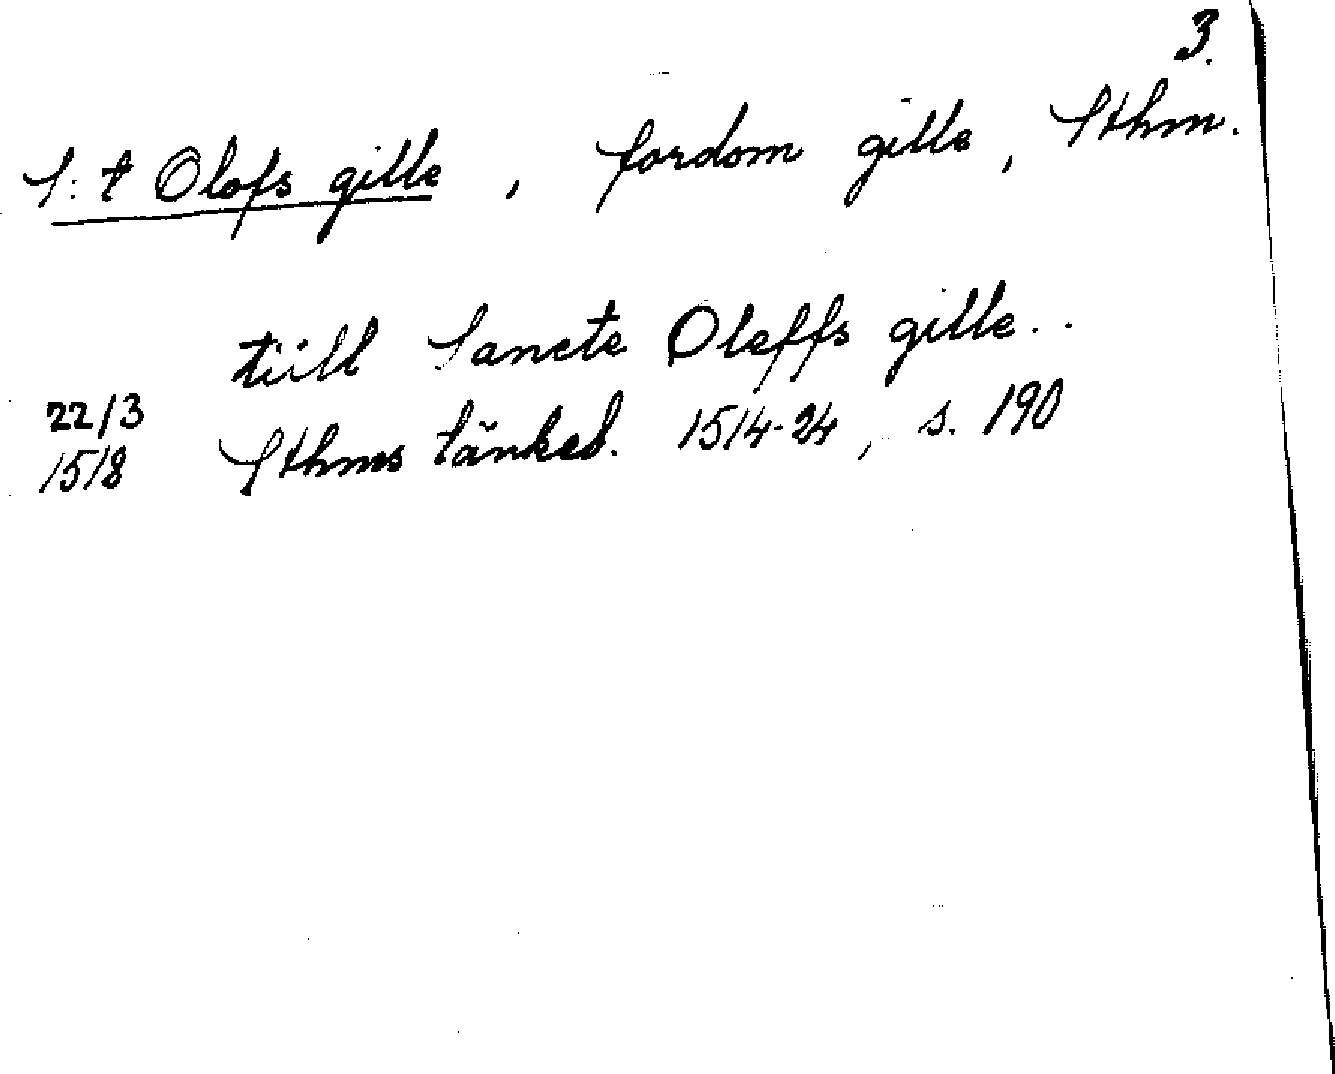 3.
S:t Olofs gille, fordom gille, Sthm.
tiill Sancte Oleffs gille..
22/3
1518 Sthms tänkeb. 1514-24, s. 190